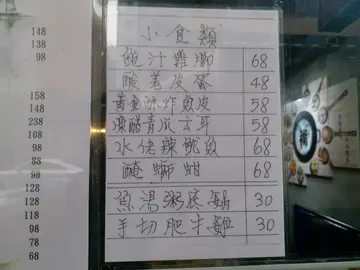 148
138
98
158
148
238
108
98
88
98
128
128
118
98
78
68
小食類
鮑汁雞腳 68
酸薑皮蛋 48
黃金酥炸魚皮 58
陳醋青瓜云耳 58
水佬辣鮑魚 68
醃 68
魚湯粥底鍋 30
手切肥牛 30